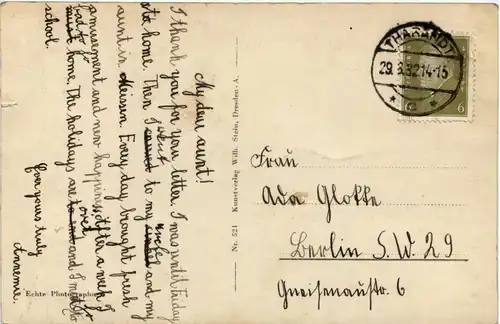 My dear aunt!
I thank you for your letter. I was until Friday
at home. Then I went to my uncle and my
aunt in Meissen. Every day brought fresh
amusement and new happiness. After a week I
had to go home. The holidays are over and I must go to
school.
Ever yours truly
Annemie.
Echte Photographie
Nr. 521 Kunstverlag Wilh. Stein, Dresden-A.
THARANDT
29.3.32 14-15
* a *
6
Frau
Ada Glokke
Berlin S.W. 29
Gneisenaustr. 6